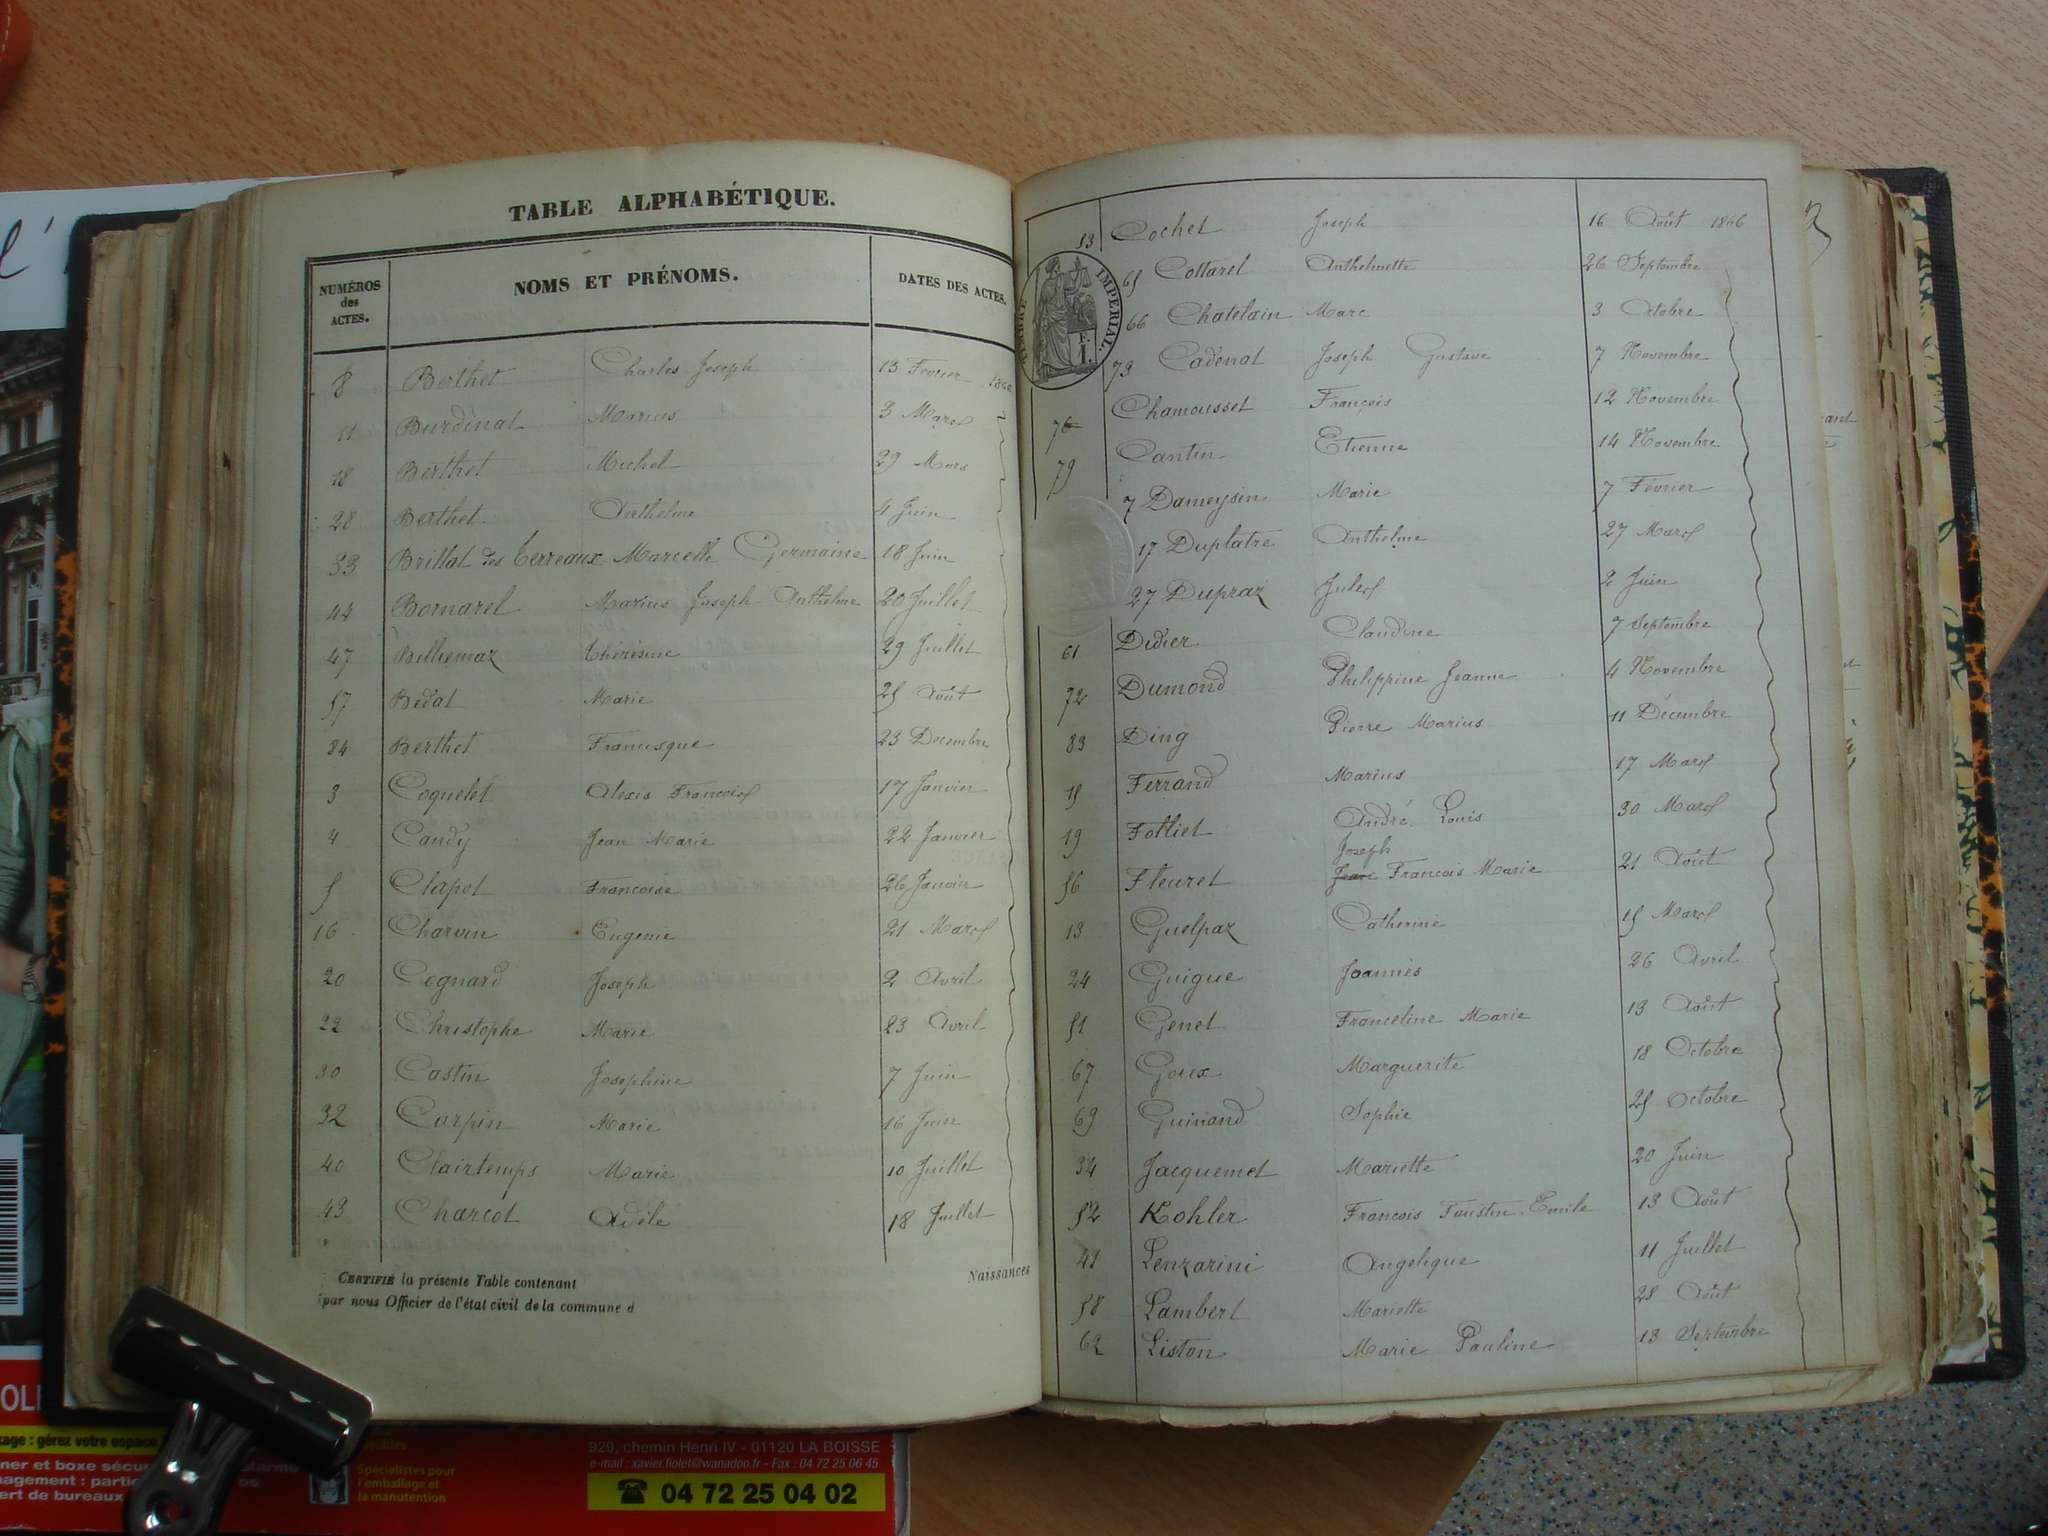 TABLE ALPHABÉTIQUE.
NUMÉROS des ACTES. NOMS ET PRÉNOMS. DATES DES ACTES.
8 Berthet Charles Joseph 13 Fevrier 1866
11 Burdinat Marius 3 Mars
18 Berthet Michel 29 Mars
28 Berthet Anthelme 4 Juin
33 Brillat des Terreaux Marcelle Germaine 18 Juin
44 Bornarel Marius Joseph Anthelme 20 Juillet
47 Billiemaz Thérésine 29 Juillet
57 Bédat Marie 25 Août
84 Berthet Francisque 23 Decembre
3 Coquelet Alexis Francois 17 Janvier
4 Candy Jean Marie 22 Janvier
5 Clapot Francoise 26 Janvier
16 Charvin Eugenie 21 Mars
20 Cognard Joseph 2 Avril
22 Christophe Marie 23 Avril
30 Castin Josephine 7 Juin
32 Carpin Marie 16 Juin
40 Clairtemps Marie 10 Juillet
43 Charcot Adèle 18 Juillet
CERTIFIÉ la présente Table contenant Naissances
par nous Officier de l'état civil de la commune d
53 Cochet Joseph 16 Août 1866
65 Cottarel Anthelmette 26 Septembre
66 Chatelain Marc 3 Octobre
73 Cadenat Joseph Gustave 7 Novembre
76 Chamousset François 12 Novembre
79 Cantin Etienne 14 Novembre
7 Dameysin Marie 7 Février
17 Duplatre Anthelme 27 Mars
27 Dupraz Jules 2 Juin
61 Didier Claudine 7 Septembre
72 Dumond Philippine Jeanne 4 Novembre
83 Ding Pierre Marius 11 Décembre
15 Ferrand Marius 17 Mars
19 Folliet André Louis 30 Mars
Joseph
56 Fleuret Jean Francois Marie 21 Août
13 Guelpaz Catherine 15 Mars
24 Guigue Joannès 26 Avril
51 Genet Franceline Marie 13 Août
67 Goux Marguerite 18 Octobre
69 Guinand Sophie 25 Octobre
34 Jacquemet Mariette 20 Juin
52 Kohler Francois Faustin Emile 13 Août
41 Lenzarini Angelique 11 Juillet
58 Lambert Mariette 28 Août
62 Liston Marie Pauline 13 Septembre
TIMBRE IMPERIAL.
F. I.
929, chemin Henri IV - 01120 LA BOISSE
e-mail : xavier.fiolet@wanadoo.fr - Fax : 04 72 25 06 45
04 72 25 04 02
Spécialistes pour
l'emballage et
la manutention
gérez votre espace
ner et boxe
ert de bureaux